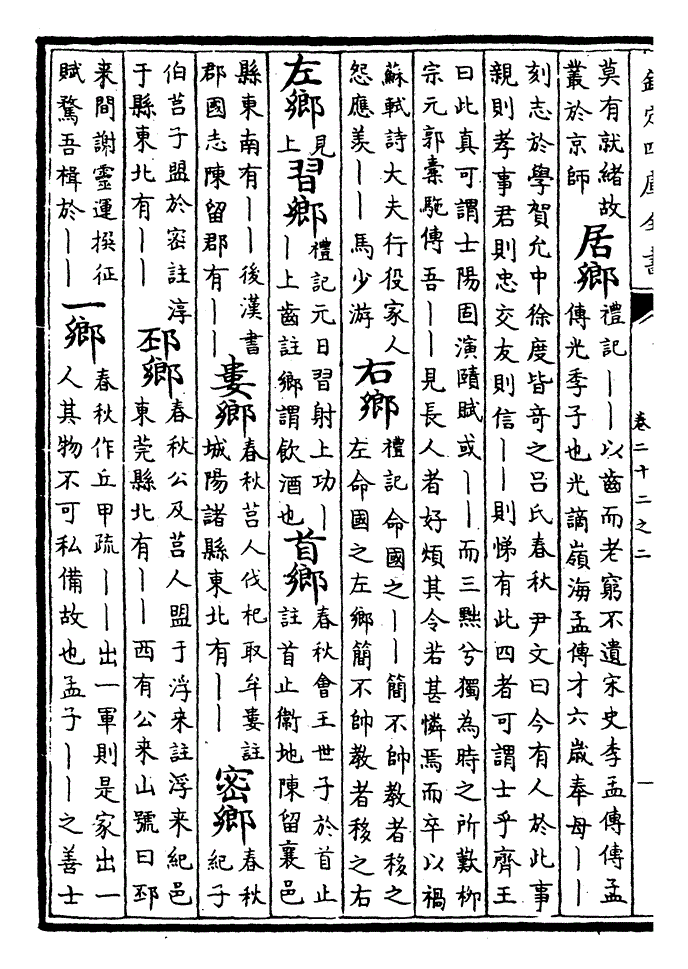 欽定四庫全書
卷二十二之二
一
莫有就緒故
叢於京師
居鄉
禮記——以齒而老窮不遺宋史李孟傳傳孟
傳光季子也光謫嶺海孟傳才六歲奉母——
刻志於學賀允中徐度皆奇之呂氏春秋尹文曰今有人於此事
親則孝事君則忠交友則信——則悌有此四者可謂士乎齊王
曰此真可謂士陽固演賾賦或——而三黜兮獨為時之所歎柳
宗元郭橐駝傳吾——見長人者好煩其令若甚憐焉而卒以禍
蘇軾詩大夫行役家人
怨應羨——馬少游
右鄉
禮記命國之——簡不帥教者移之
左命國之左鄉簡不帥教者移之右
左鄉
見
上
習鄉
禮記元日習射上功—
—上齒註鄉謂飲酒也
首鄉
春秋會王世子於首止
註首止衞地陳留襄邑
縣東南有——後漢書
郡國志陳留郡有——
婁鄉
春秋莒人伐杞取牟婁註
城陽諸縣東北有——
密鄉
春秋
紀子
伯莒子盟於密註淳
于縣東北有——
邳鄉
春秋公及莒人盟于浮来註浮来紀邑
東莞縣北有——西有公来山號曰邳
来間謝靈運撰征
賦騖吾楫於——
一鄉
春秋作丘甲疏——出一軍則是家出一
人其物不可私備故也孟子——之善士